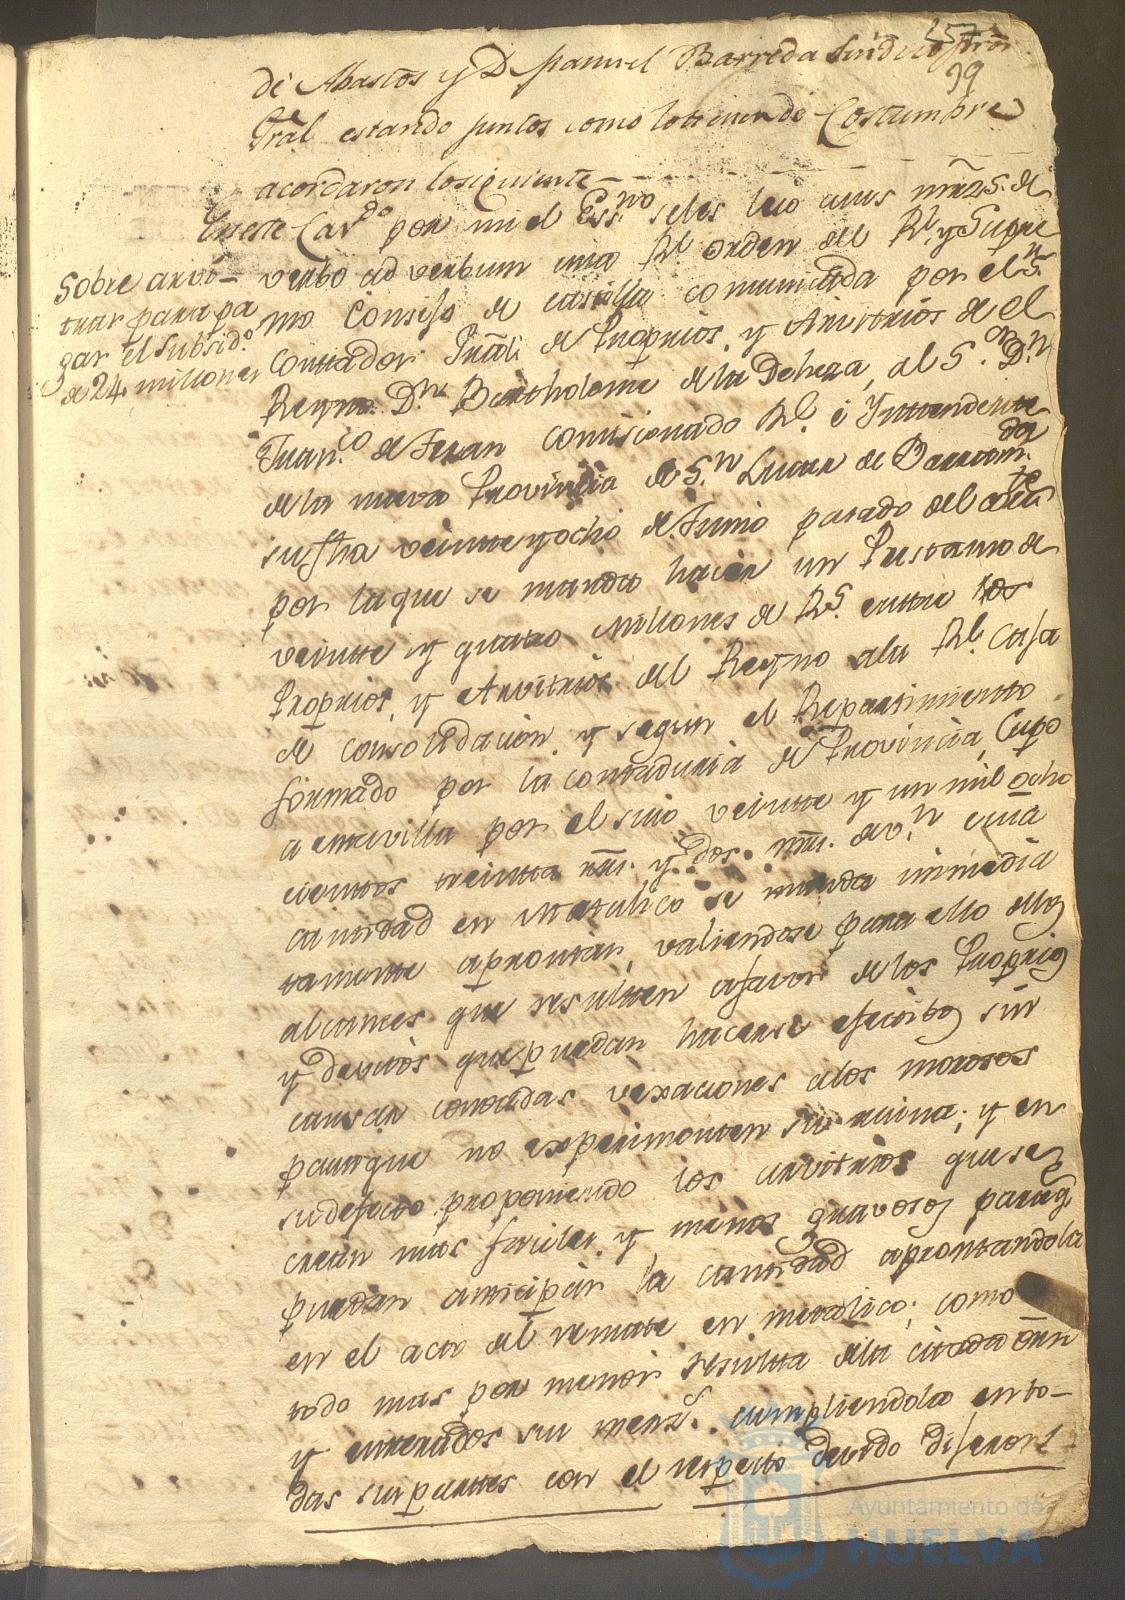 257
99
de Abastos y Dn Manuel Barreda Sindico pror
Gral estando juntos como lo tienen de Costumbre
acordaron lo siguiente
En este Cavdo por mi el Essno se les leio a sus mrzs. de
Sobre arvi-
trar para pa
gar el subsido
de 24 millones
verbo ad verbum una Rl orden del Rl y Supre
mo Consejo de Castilla comunicada por el Sr
Contador Gral de Proprios y Arvitrios de el
Reyno Dn Bartholome de la Deheza, al Sor Dn
Franco de Teran comisionado Rl é Yntendente
de la nueva Provincia de Sn Lucar de Barrameda
su fha veinte y ocho de Junio pasado del corrte
por la que se manda hacer un Prestamo de
veinte y quatro Millones de Rs entre los
Proprios y Arvitrios del Reyno a la Rl Casa
de consolidacion y segun el Repartimiento
formado por la contaduria de Provincia, Cupo
a esta villa por el suio veinte y un mil ocho
cientos treinta rrs. y dos mrs. de vn cuia
cantidad en Metalico se manda inmedia
tamente aprontar, valiendose para ello de los
alcances que resulten a favor de los Proprios
y devitos que puedan hacerse efectivos sin
causar conocidas vexaciones a los morosos
para que no experimenten su ruina; y en
su defecto proponiendo los arvitrios que se
crean mas faciles y menos gravosos para q
puedan anticipar la cantidad aprontandola
en el acto del remate en metalico; como
todo mas por menor resulta de la citada orn
y enterados sus merzs. cumpliendola en to-
das sus partes con el respecto devido dixeron
Ayuntamiento de
HUELVA